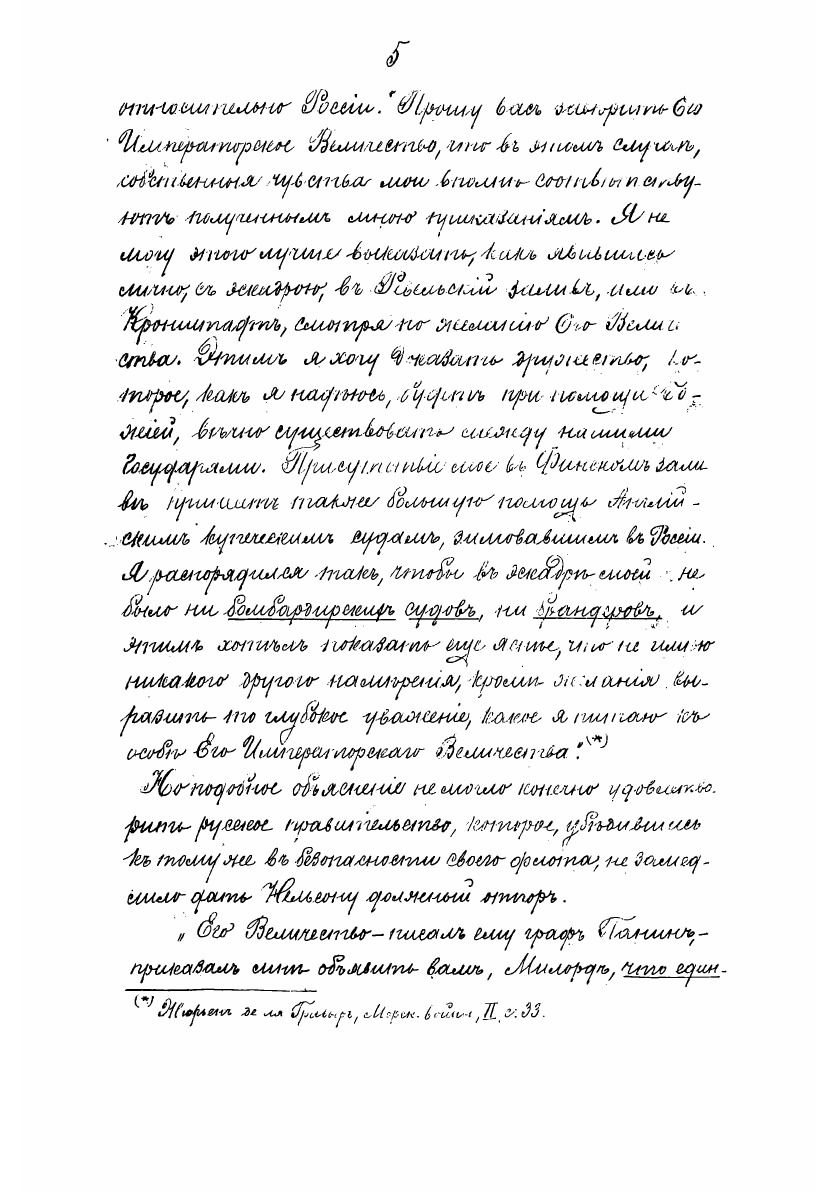 5
относительно Россіи. "Прошу васъ завѣрить Его
Императорское Величество, что въ этомъ случаѣ,
собственныя чувства мои вполнѣ соотвѣтству-
ютъ полученнымъ мною приказаніямъ. Я не
могу этого лучше высказать, какъ явившись
лично, съ эскадрою, въ Ревельскій заливъ, или въ
Кронштадтъ, смотря по желанію Его Величе
ства. Этимъ я хочу доказать дружество, ко-
торое, какъ я надѣюсь, будетъ при помощи Бо-
жіей, вѣчно существовать между нашими
Государями. Присутствіе мое въ Финскомъ зали
вѣ принесетъ также большую помощь Англій-
скимъ купеческимъ судамъ, зимовавшимъ въ Россіи.
Я распорядился такъ, чтобы въ эскадрѣ моей не
было ни бомбардирскихъ судовъ, ни брандеровъ, и
этимъ хотѣлъ показать еще яснѣе, что не имѣю
никакого другого намѣренія, кромѣ желанія вы-
разить то глубокое уваженіе, какое я питаю къ
особѣ Его Императорскаго Величества". (*)
Но подобное объясненіе не могло конечно удовлетво-
рить русское правительство, которое, убѣдившись
къ тому же въ безопасности своего флота, не замед-
лило дать Нельсону должный отпоръ.
„Его Величество – писалъ ему графъ Панинъ, –
приказалъ мнѣ объявить вамъ, Милордъ, что един-
(*) Жюрьенъ де ля Гравьеръ, Морск. войны, II, с. 33.